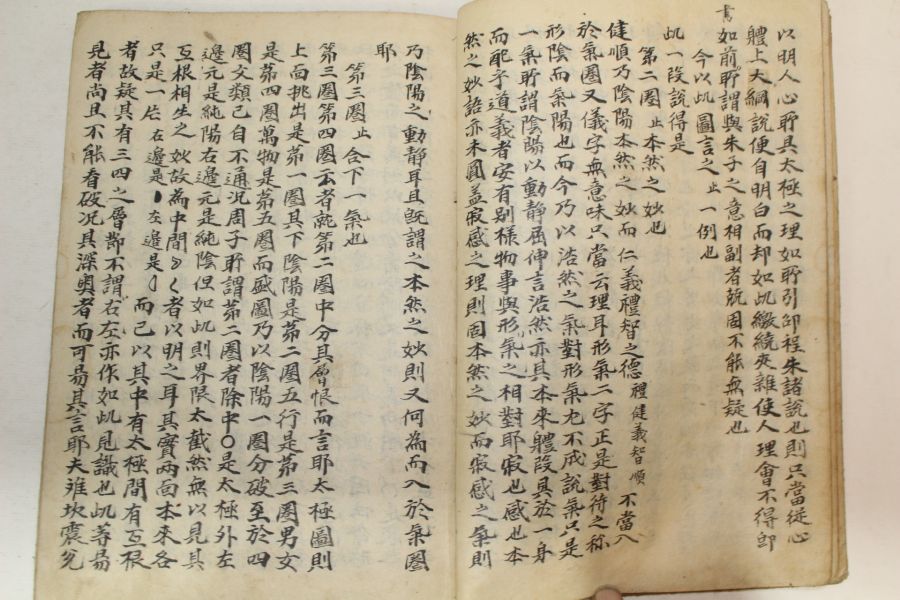 以明人心所具太極之理如所引邵程朱諸說也則只當從心
體上大綱說便自明白而却如此繳繞夾雜使人理會不得卽
如前所謂與朱子之意相副者兢固不能無疑也
書
今以此圖言之止一例也
此一段說得是
第二圈止本然之妙也
健順乃陰陽本然之妙而仁義禮智之德禮健義智順不當入
於氣圈又儀字無意味只當云理耳形氣二字正是對待之称
形陰而氣陽也而今乃以浩然之氣對形氣尤不成說氣只是
一氣所謂陰陽以動靜屈伸言浩然亦其本來體段具於一身
而配乎道義者安有別樣物事與形氣之相對耶寂也感也本
然之妙語亦未圓盖寂感之理則固本然之妙而寂感之氣則
乃陰陽之動靜耳且旣謂之本然之妙則又何為而入於氣圈
耶
第三圈止合下一氣也
第三圈第四圈云者就第二圈中分其層限而言耶太極圖則
上面挑出是第一圈其下陰陽是第二圈五行是第三圈男女
是第四圈萬物是第五圈而圖乃以陰陽一圈分破至於四
圈文類已自不通况周子所謂第二圈者除中○是太極外左
邊元是純陽右邊元是純陰但如此則界限太截然無以見其
互根相生之妙故為中間者以明之耳其實兩面本來各
只是一片右邊是左邊是而已以其中有太極間有互根
者故疑其有三四之層鄙不謂右左亦作如此見識也此等易
見者尚且不能看破况其深奧者而可易其言耶夫離坎震兌